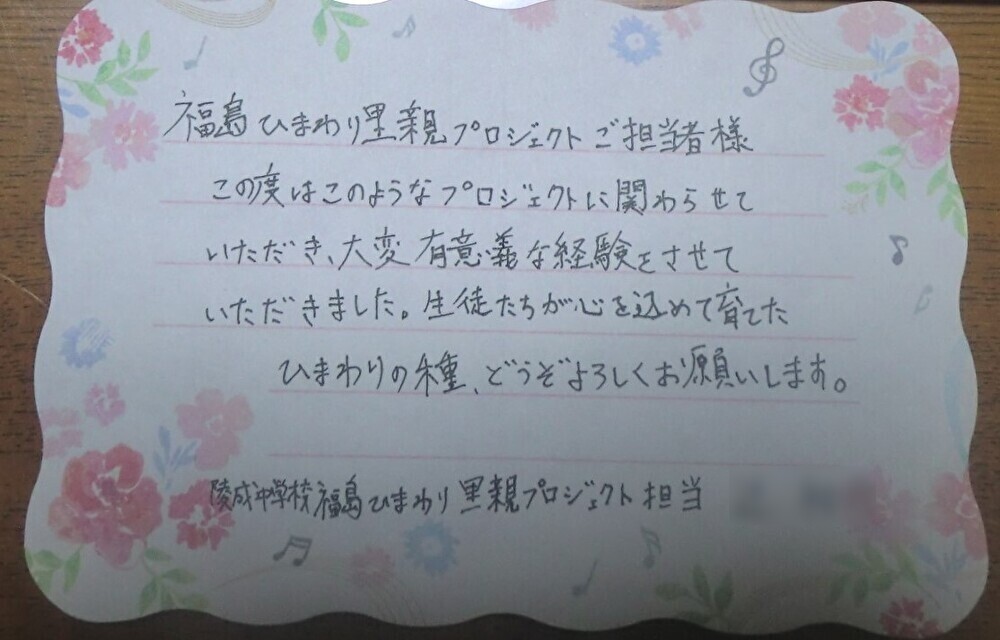 福島ひまわり里親プロジェクトご担当者様
この度はこのようなプロジェクトに関わらせて
いただき、大変有意義な経験をさせて
いただきました。生徒たちが心を込めて育てた
ひまわりの種、どうぞよろしくお願いします。
陵成中学校福島ひまわり里親プロジェクト担当